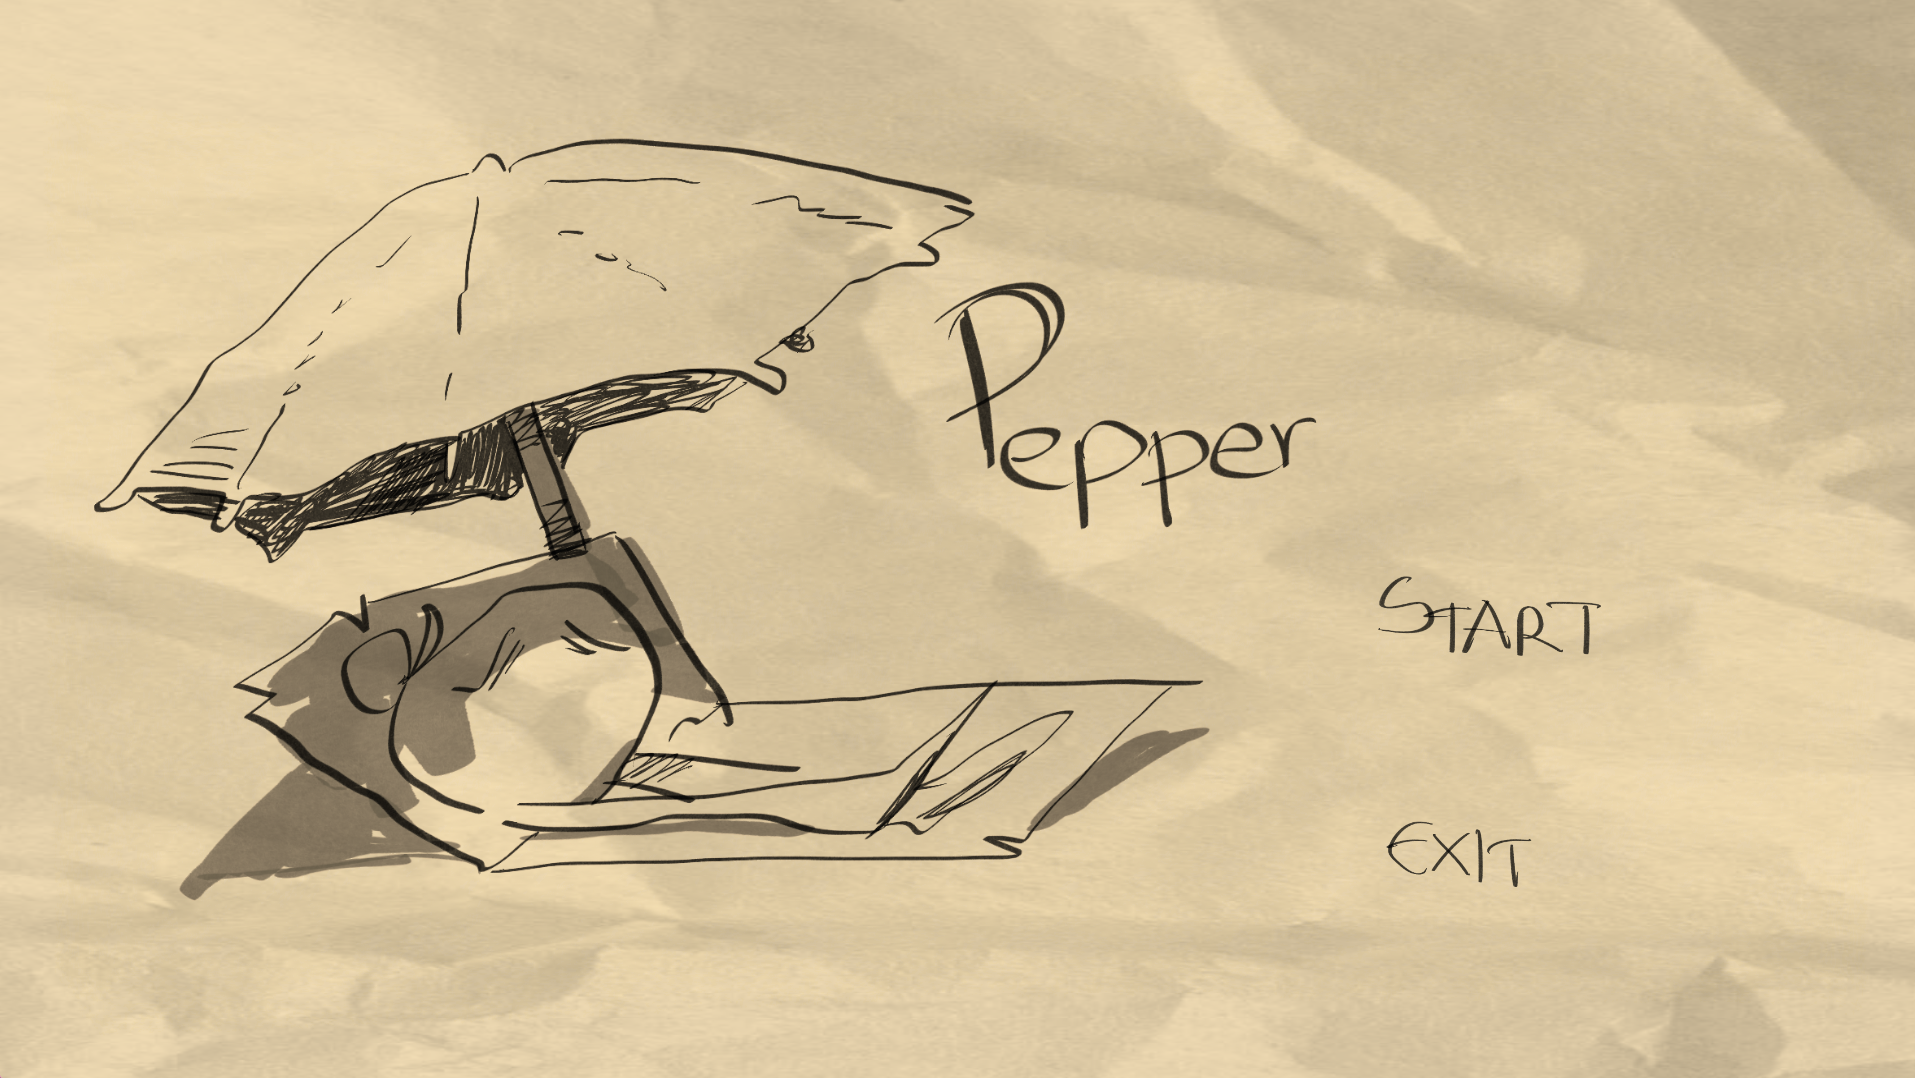 Pepper
START
EXIT